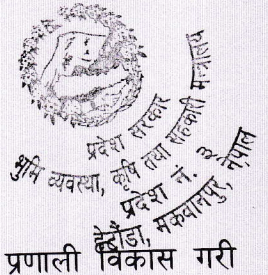 प्रदेश सरकार
भुमि व्यवस्था, कृषि तथा सहकारी मन्त्रालय
प्रदेश नं. ३
हेटौंडा, मकवानपुर, नेपाल
प्रणाली विकास गरी